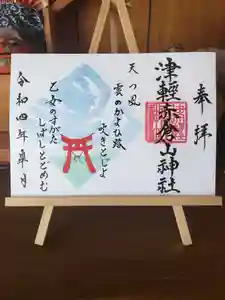 奉拝
津軽赤倉山神社
天つ風
雲のかよひ路
吹きとじよ
乙女のすがた
しばしとどめむ
令和四年皐月